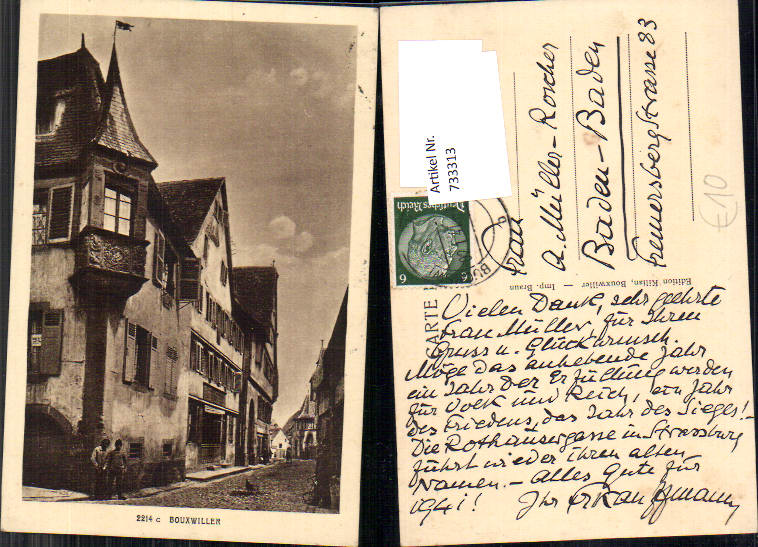 2214 c BOUXWILLER
Artikel Nr.
733313
Deutsches Reich
6
6
Frau
A. Müller-Roscher
Baden-Baden
Fremersbergstrasse 83
€10
Edition Kilian, Bouxwiller — Imp. Braun
CARTE
Vielen Dank, sehr geehrte
Frau Müller, für Ihren
Gruss u. Glückwunsch.
Möge das anhebende Jahr
ein Jahr der Erfüllung werden
für Volk und Reich, ein Jahr
des Friedens, das Jahr des Sieges! –
Die Rothäusergasse in Strassburg
führt wieder ihren alten
Namen. – Alles Gute für
1941! Ihr Kauffmann